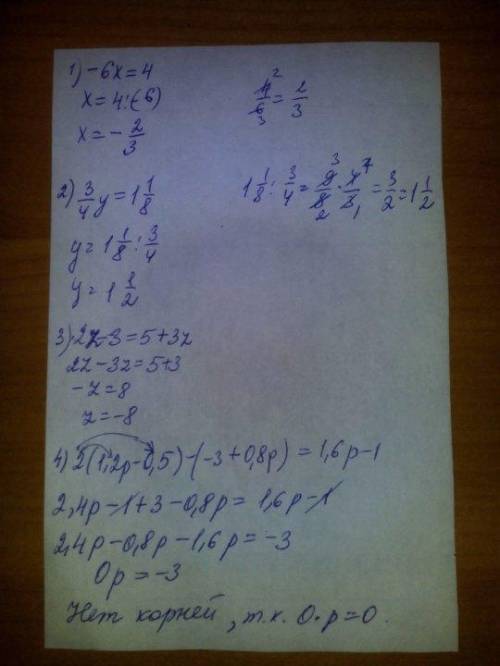 1) -6x=4
x=4:(-6)
x=-2/3
4/6=2/3
2) 3/4 y=1 1/8
1 1/8 : 3/4 = 9/8 · 4/3 = 3/2 = 1 1/2
y=1 1/8 : 3/4
y=1 1/2
3) 2z-3=5+3z
2z-3z=5+3
-z=8
z=-8
4) 2(1,2p-0,5)-(-3+0,8p)=1,6p-1
2,4p-1+3-0,8p=1,6p-1
2,4p-0,8p-1,6p=-3
0p=-3
Нет корней, т.к. 0·p=0.